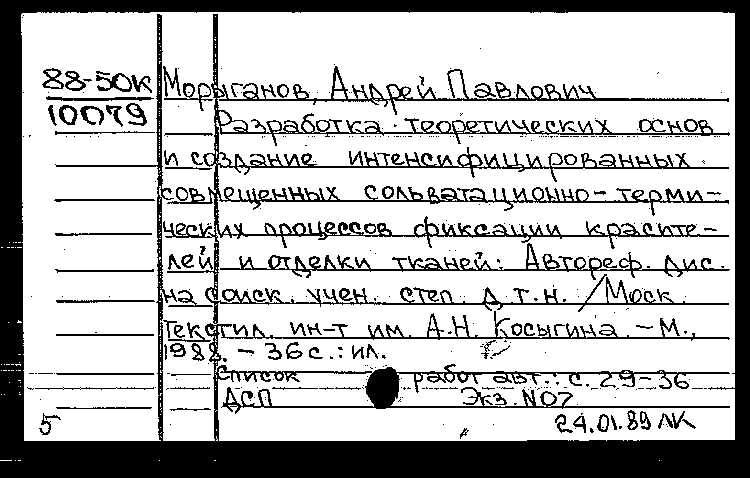 88-50к Морыганов, Андрей Павлович
10079 Разработка теоретических основ
и создание интенсифицированных
совмещенных сольватационно-терми-
ческих процессов фиксации красите-
лей и отделки тканей: Автореф. дис.
на соиск. учен. степ. Д т.н. /Моск.
Текстил. ин-т им. А.Н. Косыгина. - М.,
1988. - 36 с.: ил.
Список работ авт.: с. 29-36
ДСП Экз. N07
5 24.01.89 ЛК